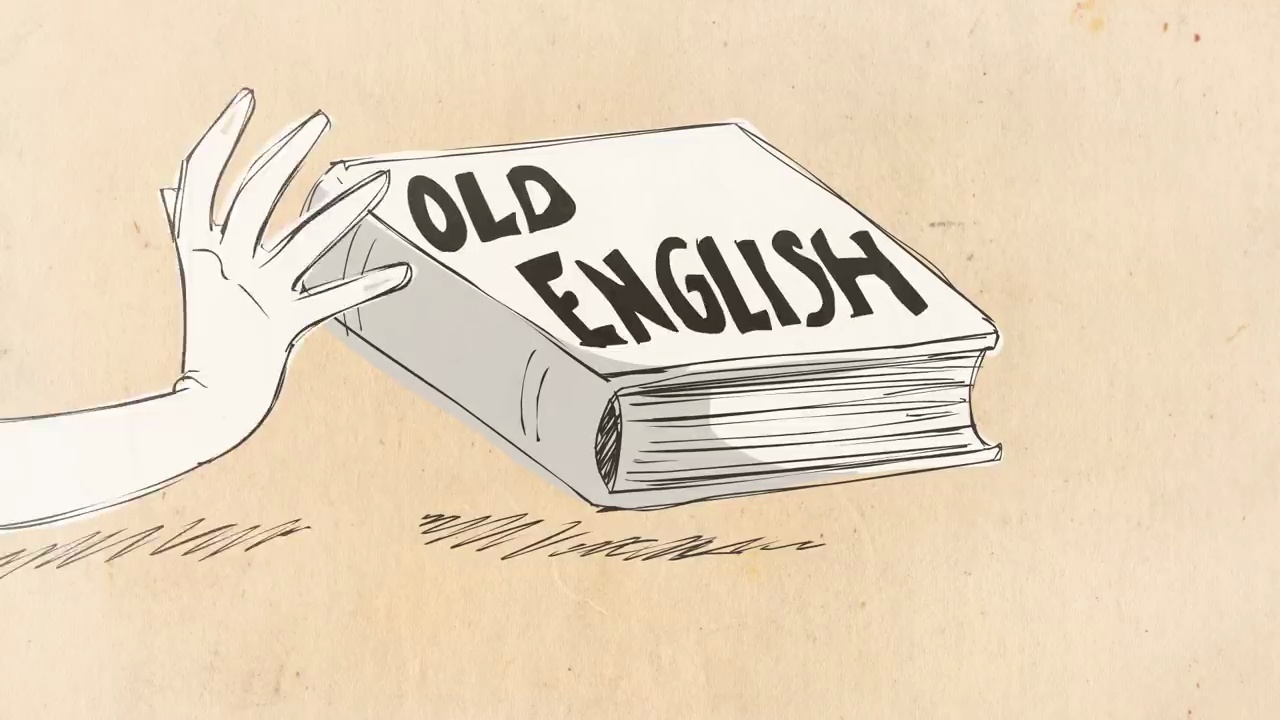 OLD
ENGLISH